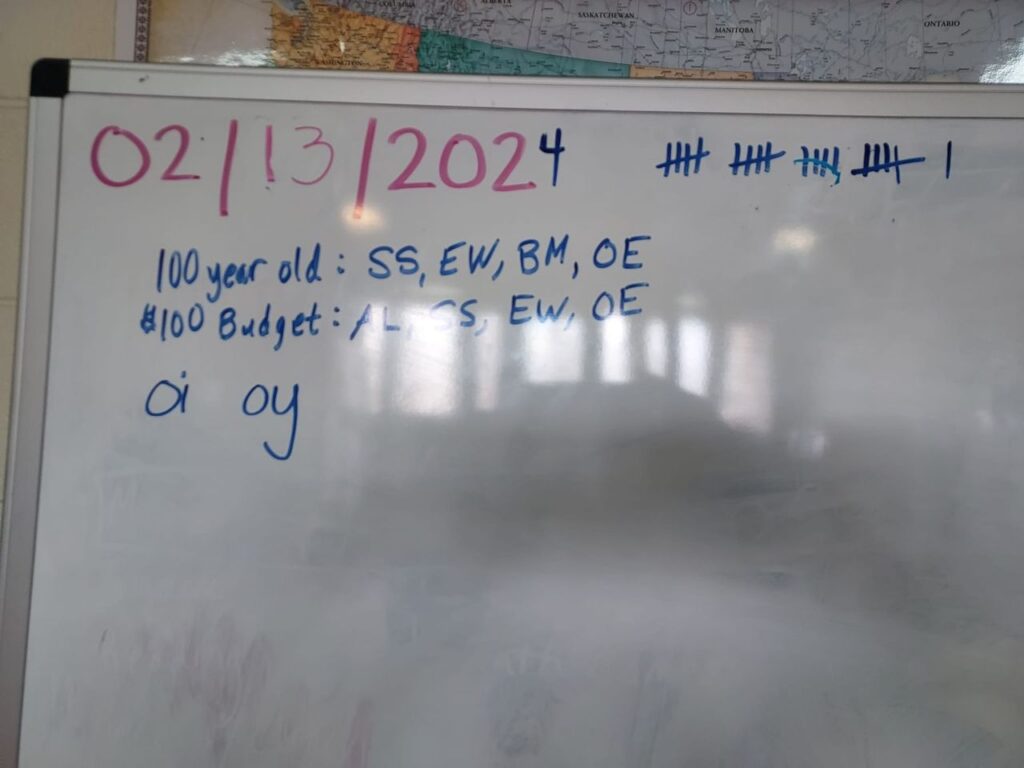 COLUMBIA ALBERTA SASKATCHEWAN MANITOBA ONTARIO
WASHINGTON
02/13/2024
100 year old: SS, EW, BM, OE
$100 Budget: AL, SS, EW, OE
oi oy